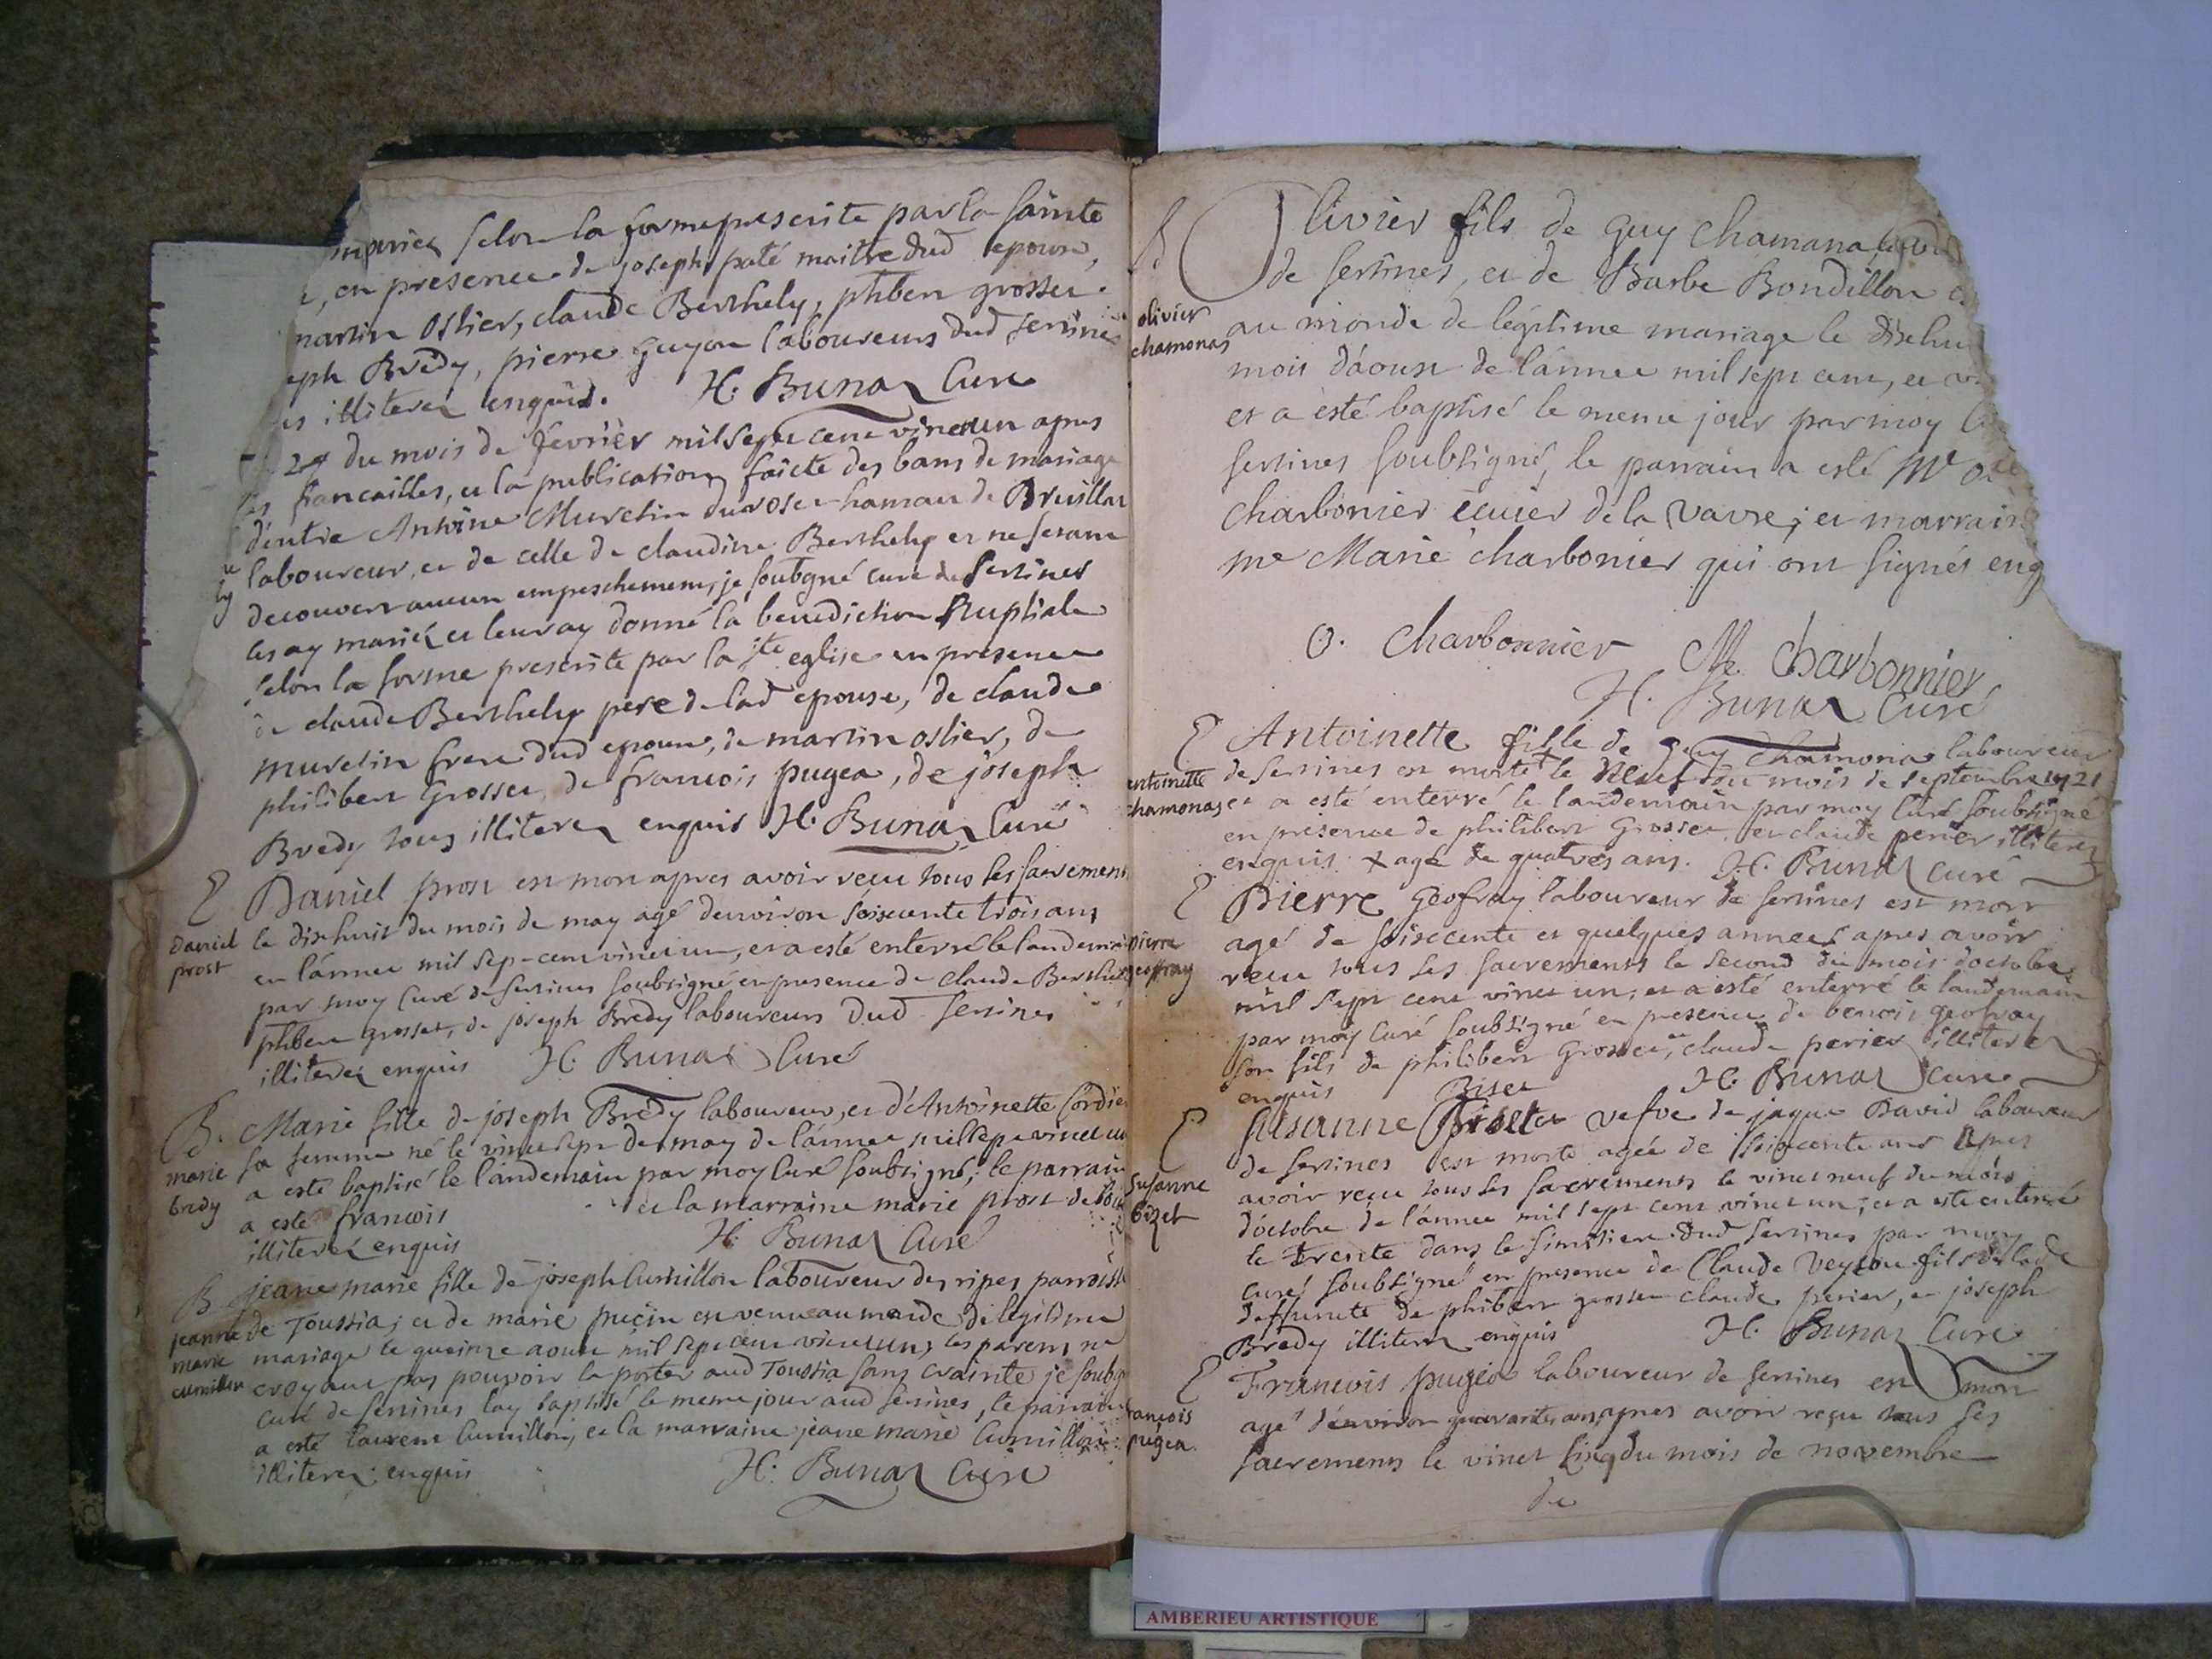 mariez selon la forme prescrite par la sainte
en presence de joseph paté maitre dud epoux,
martin Ostier, claude Berthely, phber grosset
eph Bredy, pierre guyon laboureurs dud sersines
illiterez enquis. H. Bunaz Curé
du mois de février mil sept cent vinct un apres
les fiancailles, et la publication faicte des bans de mariage
d'entre Antoine Muretin du hamau de
laboureur, et de celle de claudine Berthely et ne sestant
decouvert aucun empeschement, je soubsigné curé de Sersines
les ay mariéz et leur ay donné la benediction Nuptiale
selon la forme prescrite par la ste eglise en presence
de claude Berthely pere de lad epouse, de claude
muretin frere dud epoux, de martin ostier, de
philibert Grosset, de francois pugea, de joseph
Bredy tous illiterez enquis H. Bunaz Curé
E Daniel prost est mort apres avoir receu tous les sacrements
daniel
prost
le dixhuit du mois de may agé denviron soisecente trois ans
en l'annee mil sep-cent vinct un, et a esté enterré le landemain
par moy Curé de sersines soubsigné en presence de claude Berthely
phiber grosset, de joseph Bredy laboureurs dud sersines
illiterez enquis H. Bunaz Curé
B. Marie fille de joseph Bredy laboureur, et d'Antoinette Cordier
marie
bredy
sa femme né le vinct sept de may de l'annee mil sept vinct un
a esté baptisé le landemain par moy Curé soubsigné; le parrain
a esté francois et la marraine marie prost de
illiterez enquis H. Bunaz Curé
B jeane marie fille de joseph Cumillon laboureur des ripes parroisse
jeanne
marie
cumillon
de Toussia; et de marie puçin est venue au monde de legitime
mariage le quinze aoust mil sept cent vinct un, les parens ne
croyant pas pouvoir la porter aud Toussia sans crainte je soubsg
curé de sersines lay baptisé le meme jour aud sersines, le parrain
a esté laurent Cumillon, et la marraine jeane marie Cumillon
illiterez enquis H. Bunaz Curé
Olivier fils de guy chamona
olivier
chamonas
de sersines, et de Barbe Bondillon
au monde de légitime mariage le dixhui
mois d'aoust de l'annee mil sept cent, et vi
et a esté baptisé le meme jour par moy
sersines soubsigné, le parrain a esté Mr
charbonier ecuier de la vavre; et marrain
me Marie charbonier qui ont signés enq
O. Charbonnier M. Charbonnier
H. Bunaz Curé
E Antoinette fille de Guy Chamona laboureur
antoinette
chamonas
de sersines est morte + le neuf du mois de septembre 1721
et a esté enterré le landemain par moy Curé soubsigné
en presence de philibert Grosset, et claude perier illiterez
enquis + agé de quatres ans. H. Bunaz curé
E Pierre Geofray laboureur de sersines est mort
pierre
geoffray
agé de soisecente et quelques annees apres avoir
receu tous les sacrements le second du mois doctobre
mil sept cent vinct un, et a esté enterré le landemain
par moy Curé soubsigné en presence de benoit geofray
son fils de philibert Grosset, et claude perier illiterez
enquis H. Bunaz Curé
Biset
E Susanne vefve de jaque David laboureur
susanne
bizet
de sersines est morte agée de soisecente ans apres
avoir reçu tous les sacrements le vinct neuf du mois
d'octobre de l'annee mil sept cent vinct un; et a esté enterré
le Trente dans le simetiere dud sersines par moy
curé soubsigné en presence de Claude Veyron fils de lade
deffuncte de phibert grosset claude perier, et joseph
Bredy illiterez enquis H. Bunaz Curé
E Francois pugea laboureur de sersines est mort
francois
pugea
agé d'environ quarante ans, apres avoir reçu tous ses
sacrements le vinct cinq du mois de novembre
de
AMBERIEU ARTISTIQUE